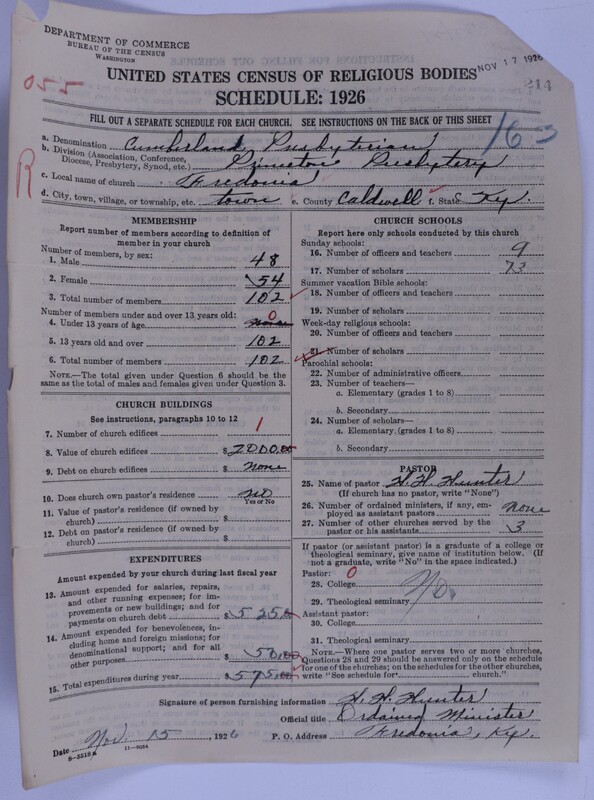 DEPARTMENT OF COMMERCE
BUREAU OF THE CENSUS
WASHINGTON
NOV 17 1926
055
UNITED STATES CENSUS OF RELIGIOUS BODIES
214
SCHEDULE: 1926
FILL OUT A SEPARATE SCHEDULE FOR EACH CHURCH. SEE INSTRUCTIONS ON THE BACK OF THIS SHEET
a. Denomination Cumberland Presbyterian
b. Division (Association, Conference, Diocese, Presbytery, Synod, etc.) Princeton Presbytery
R
c. Local name of church Fredonia
d. City, town, village, or township, etc. town e. County Caldwell f. State Ky.
MEMBERSHIP
Report number of members according to definition of member in your church
Number of members, by sex:
1. Male 48
2. Female 54
3. Total number of members 102
Number of members under and over 13 years old: 0
4. Under 13 years of age None
5. 13 years old and over 102
6. Total number of members 102
NOTE.—The total given under Question 6 should be the same as the total of males and females given under Question 3.
CHURCH BUILDINGS
See instructions, paragraphs 10 to 12
7. Number of church edifices 1
8. Value of church edifices $2000.00
9. Debt on church edifices $ None
10. Does church own pastor's residence No
Yes or No
11. Value of pastor's residence (if owned by church) $
12. Debt on pastor's residence (if owned by church) $
EXPENDITURES
Amount expended by your church during last fiscal year
13. Amount expended for salaries, repairs, and other running expenses; for improvements or new buildings; and for payments on church debt $525.00
14. Amount expended for benevolences, including home and foreign missions; for denominational support; and for all other purposes $50.00
15. Total expenditures during year $575.00
CHURCH SCHOOLS
Report here only schools conducted by this church
Sunday schools:
16. Number of officers and teachers 9
17. Number of scholars 73
Summer vacation Bible schools:
18. Number of officers and teachers
19. Number of scholars
Week-day religious schools:
20. Number of officers and teachers
21. Number of scholars
Parochial schools:
22. Number of administrative officers
23. Number of teachers—
a. Elementary (grades 1 to 8)
b. Secondary
24. Number of scholars—
a. Elementary (grades 1 to 8)
b. Secondary
PASTOR
25. Name of pastor H. H. Hunter
(If church has no pastor, write "None")
26. Number of ordained ministers, if any, employed as assistant pastors None
27. Number of other churches served by the pastor or his assistants 3
If pastor (or assistant pastor) is a graduate of a college or theological seminary, give name of institution below. (If not a graduate, write "No" in the space indicated.)
Pastor: 0
28. College
No
29. Theological seminary
Assistant pastor:
30. College
31. Theological seminary
NOTE.—Where one pastor serves two or more churches, Questions 28 and 29 should be answered only on the schedule for one of the churches; on the schedules for the other churches, write "See schedule for church."
Signature of person furnishing information H. H. Hunter
Official title Ordained Minister
Date Nov. 15, 1926 P. O. Address Fredonia, Ky.
11—9084